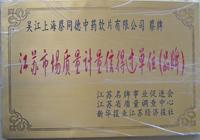 吴江上海蔡同德中药饮片有限公司 蔡牌
江苏市场质量计量信得过单位(品牌)
江苏名牌事业促进会
江苏省质量调查中心
新华报业江苏经济报社